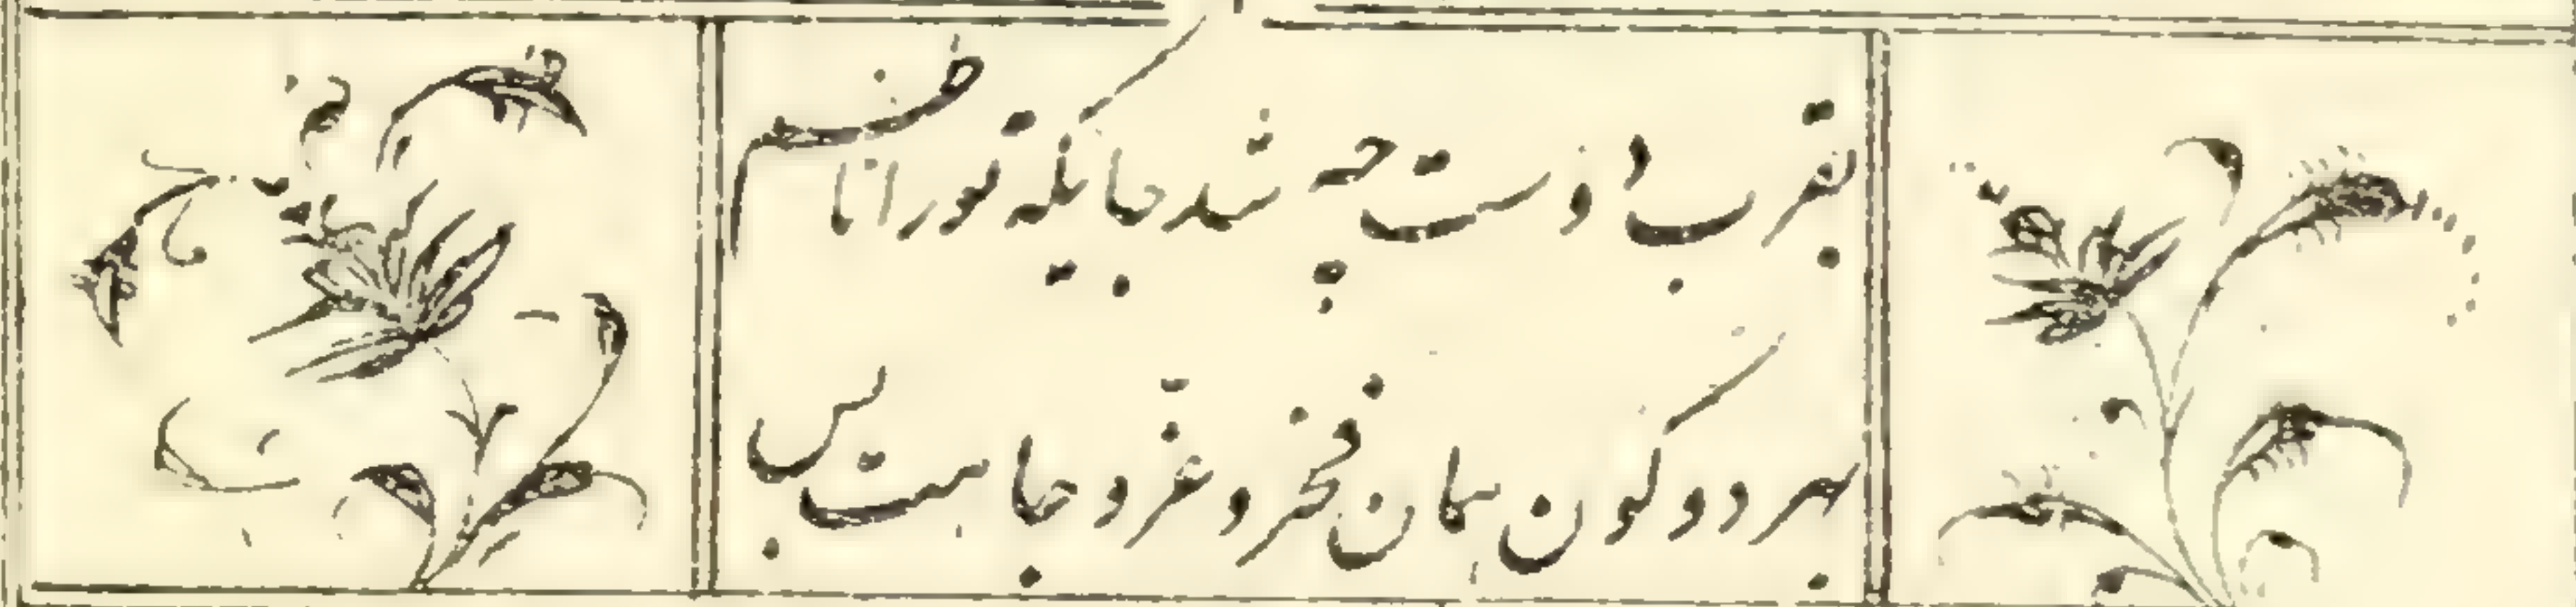 بقرب اوست چه شد جایکه تو را ناظم
بهر دو کون همان فخر و عزّ و جاهت بس